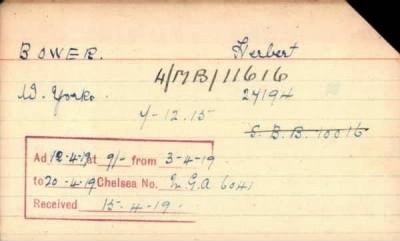 BOWER. Herbert
4/MB/11616
W. Yorks. 24194
4-12.15
S.B.B. 10016
Ad 12-4-19 at 9/- from 3-4-19
to 20-4-19 Chelsea No. 6041
Received 15-4-19.